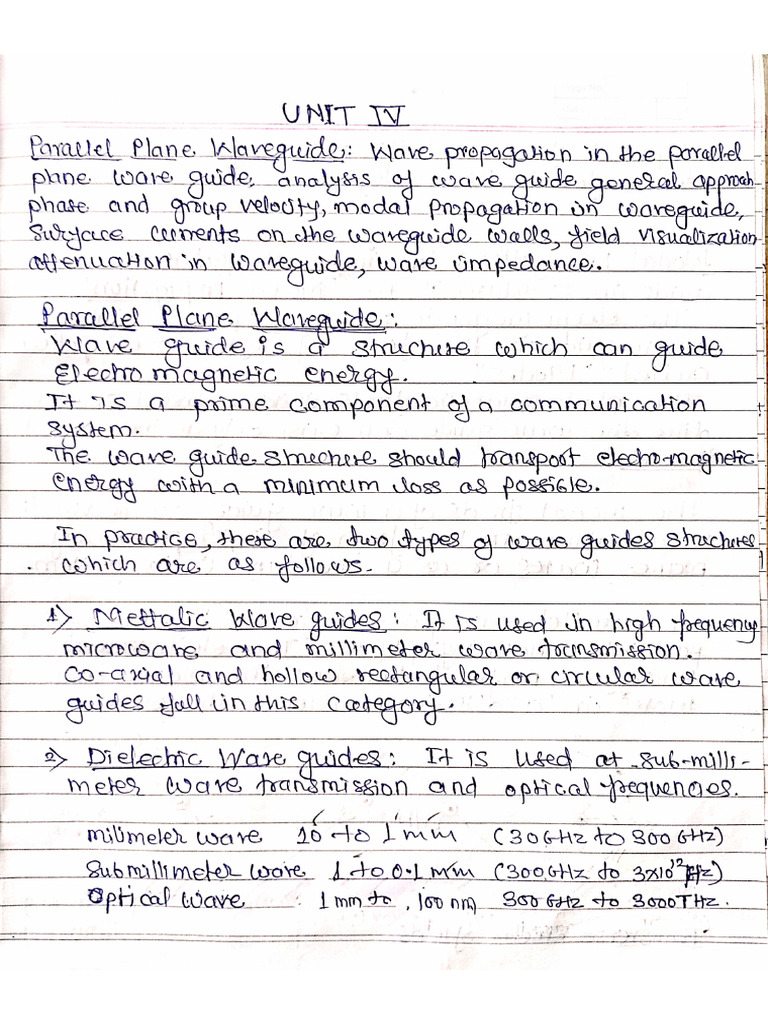 UNIT IV
Parallel Plane Waveguide: Wave propagation in the parallel
plane wave guide, analysis of wave guide general approach
phase and group velocity, modal propagation in waveguide,
surface currents on the waveguide walls, field visualization
attenuation in waveguide, wave impedance.
Parallel Plane Waveguide:
Wave guide is a structure which can guide
Electro magnetic energy.
It is a prime component of a communication
system.
The wave guide structure should transport electro-magnetic
energy with a minimum loss as possible.
In practice, there are two types of wave guides structures
which are as follows.
1) Mettalic Wave guides: It is used in high frequency
microwave and millimeter wave transmission.
Co-axial and hollow rectangular or circular wave
guides fall in this category.
2) Dielectric Wave guides: It is used at sub-milli-
meter wave transmission and optical frequencies.
milimeter wave 10 to 1 mm (30GHz to 300 GHz)
Submillimeter wave 1 to 0.1 mm (300GHz to 3x10¹² Hz)
Optical wave : 1 mm to 100 nm 300 GHz to 3000THz.